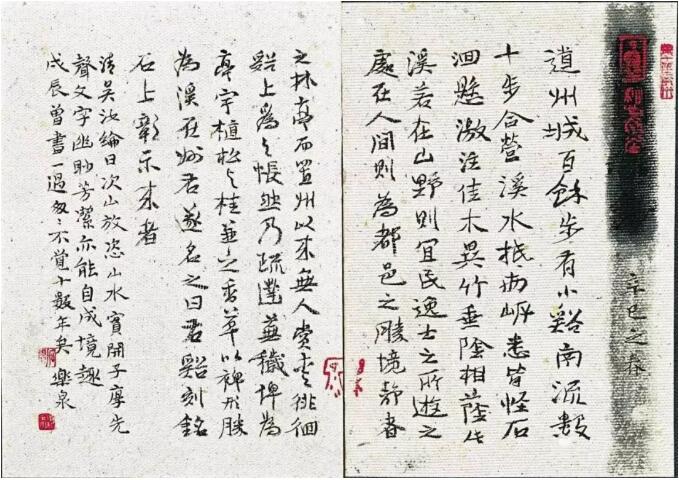 辛巳之春
道州城百餘步有小谿南流數
十步合營溪水抵两岍悉皆怪石
洄懸激注佳木異竹垂陰相蔭此
溪若在山野則宜民逸士之所遊之
處在人間則為都邑之勝境静者
之林亭而置州以来無人賞愛徘徊
谿上為之悵然乃疏鑿蕪穢俾為
亭宇植松与桂並之香草以裨形勝
為溪在州右遂名之曰右谿刻銘
石上彰示来者
清吴汝綸曰次山放恣山水實開子厚先
聲文字幽眇芳潔亦能自成境趣
戊辰曾書一過匆〻不覺十數年矣 樂泉